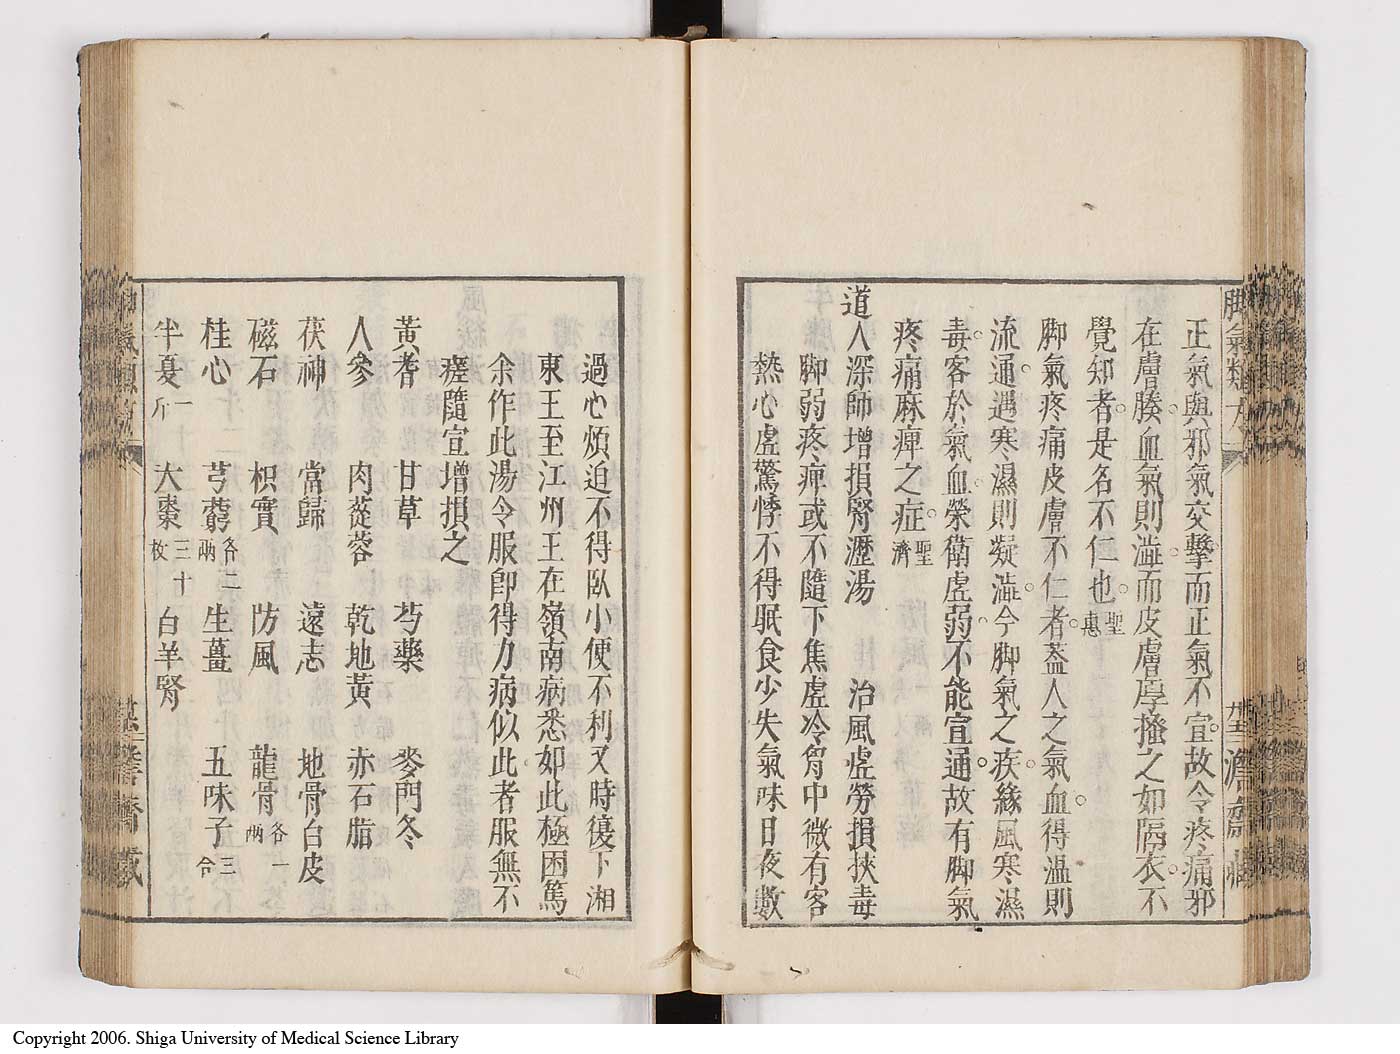 正氣與邪氣交擊而正氣不宜故令疼痛邪
在膚腠血氣則澁而皮膚厚搔之如隔衣不
覺知者是名不仁也聖惠
脚氣疼痛皮膚不仁者葢人之氣血得溫則
流通遇寒濕則凝澁今脚氣之疾緣風寒濕
毒客於氣血榮衛虛弱不能宣通故有脚氣
疼痛麻痺之症聖濟
道人深師增損腎瀝湯 治風虛勞損挾毒
脚弱疼痺或不隨下焦虛冷胷中微有客
熱心虛驚悸不得眠食少失氣味日夜數
過心煩迫不得臥小便不利又時復下湘
東王至江州王在嶺南病悉如此極困篤
余作此湯令服卽得力病似此者服無不
瘥隨宜增損之
黃耆 甘草 芍藥 麥門冬
人參 肉蓯蓉 乾地黃 赤石脂
茯神 當歸 遠志 地骨白皮
磁石 枳實 防風 龍骨各一兩
桂心 芎藭各二兩 生薑 五味子三合
半夏一斤 大棗三十枚 白羊腎
Copyright 2006. Shiga University of Medical Science Library